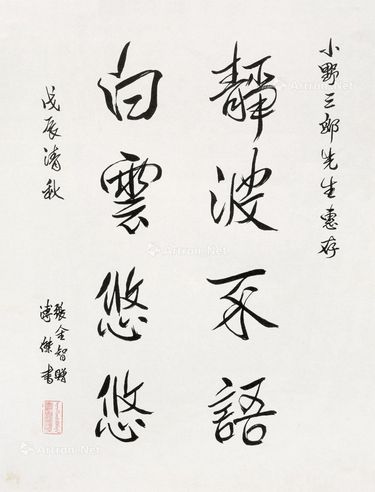 小野三郎先生惠存
靜波不語
白雲悠悠
戊辰清秋
張金智贈
溥傑書
Artron.Net
Artron.Net
Artron.Net
Artron.Net